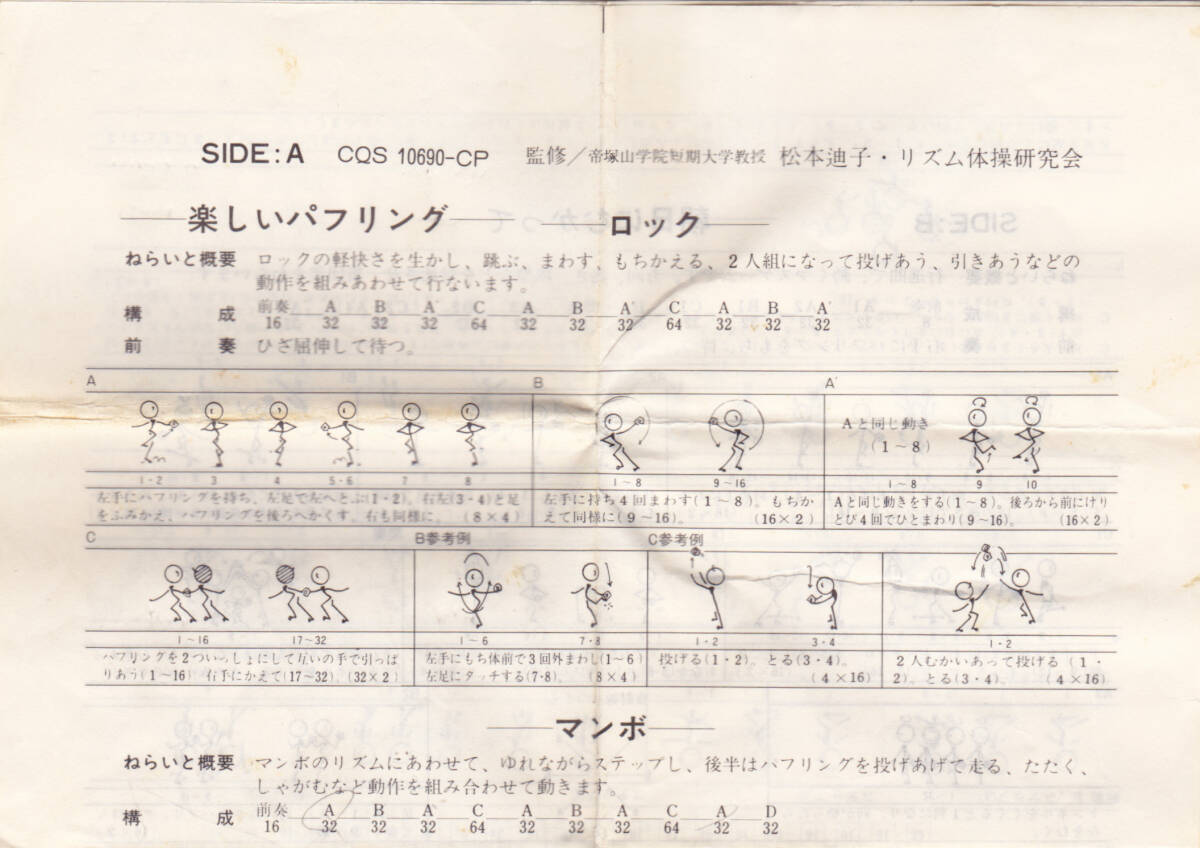 SIDE:A CQS 10690-CP 監修／帝塚山学院短期大学教授 松本迪子・リズム体操研究会
楽しいパフリング ロック
ねらいと概要 ロックの軽快さを生かし、跳ぶ、まわす、もちかえる、2人組になって投げあう、引きあうなどの
動作を組みあわせて行ないます。
構成 前奏 A B A' C A B A' C A B A'
16 32 32 32 64 32 32 32 64 32 32 32
前奏 ひざ屈伸して待つ。
A B A'
Aと同じ動き
(1～8)
1・2 3 4 5・6 7 8 1～8 9～16 1～8 9 10
左手にパフリングを持ち、左足で左へとぶ(1・2)。右左(3・4)と足
をふみかえ、パフリングを後ろへかくす。右も同様に。 (8×4)
左手に持ち4回まわす(1～8)。もちか
えて同様に(9～16)。 (16×2)
Aと同じ動きをする(1～8)。後ろから前にけり
とび4回でひとまわり(9～16)。 (16×2)
C B参考例 C参考例
1～16 17～32 1～6 7・8 1・2 3・4 1・2
パフリングを2ついっしょにして互いの手で引っぱ
りあう(1～16) 右手にかえて(17～32)。(32×2)
左手にもち体前で3回外まわし(1～6)
左足にタッチする(7・8)。 (8×4)
投げる(1・2)。とる(3・4)。
(4×16)
2人むかいあって投げる(1・
2)。とる(3・4)。 (4×16)
マンボ
ねらいと概要 マンボのリズムにあわせて、ゆれながらステップし、後半はパフリングを投げあげて走る、たたく、
しゃがむなど動作を組み合わせて動きます。
構成 前奏 A B A C A B A C A D
16 32 32 32 64 32 32 32 64 32 32